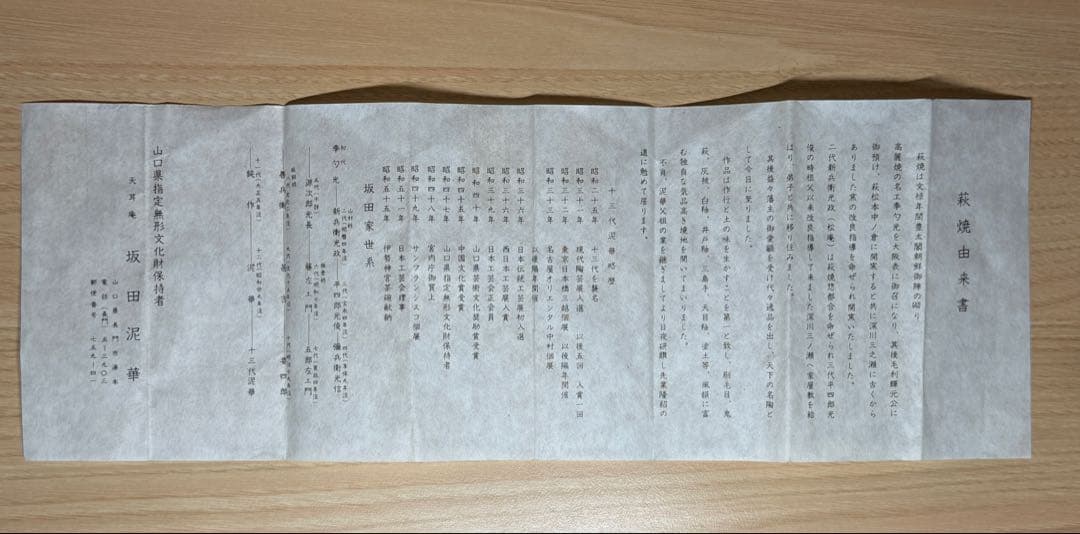 萩焼由来書
萩焼は文禄年間豊太閤朝鮮御陣の砌り
高麗焼の名工李勺光を大阪表に御召になり、其後毛利輝元公に
御預け、萩松本中ノ倉に開窯すると共に深川三之瀬に古くから
ありました窯の改良指導を命ぜられ開窯いたしました。
二代新兵衛光政(松庵)は萩焼惣都合を命ぜられ三代平四郎光
俊の時祖父以来改良指導して来ました深川三ノ瀬へ家屋敷を給
はり、弟子と共に移り住みました。
其後益々藩主の御愛顧を受け代々逸品を出し、天下の名陶と
して今日に至りました。
作品は作行と土の味を生かすことを第一と致し、刷毛目、鬼
萩、灰被、白釉、井戸釉、三島手、天目釉、塗土等、風韻に富
む独自な気品高き境地を開いてまいりました。
不肖、泥華父祖の業を継ぎましてより日夜研鑚し先業隆紹の
道に勉めて居ります。
十三代泥華略歴
昭和二十五年 十三代を襲名
昭和三十一年 現代陶芸展入選 以後五回 入賞一回
昭和三十二年 東京日本橋三越個展 以後隔年開催
昭和三十三年 名古屋オリエンタル中村個展
以後隔年開催
昭和三十六年 日本伝統工芸展初入選
昭和三十六年 西日本工芸展入賞
昭和三十九年 日本工芸会正会員
昭和四十年 山口県芸術文化奨励賞受賞
昭和四十五年 中国文化賞受賞
昭和四十七年 山口県指定無形文化財保持者
昭和四十八年 宮内庁御買上
昭和四十九年 サンフランシスコ個展
昭和五十一年 日本工芸会理事
昭和五十五年 伊勢神宮茶碗献納
坂田家世系
初代
李勺光 新兵衛光政 平四郎光俊 彌兵衛光信
源次郎光長 藤左エ門 五郎左エ門
善兵衛 甚吉 善四郎
鈍作 泥華 十三代泥華
山口県指定無形文化財保持者
天耳庵 坂田泥華
山口県長門市湯本
電話(長門)五-三九〇三
郵便番号 七五九-四一